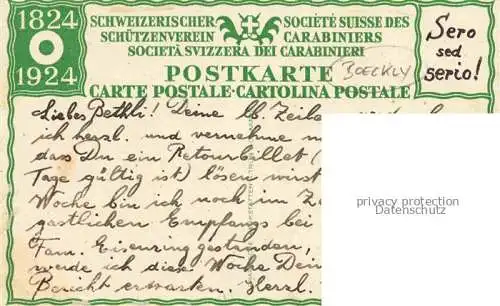 1824
1924
SCHWEIZERISCHER SOCIÉTÉ SUISSE DES
SCHÜTZENVEREIN CARABINIERS
SOCIETÀ SVIZZERA DEI CARABINIERI
POSTKARTE
CARTE POSTALE·CARTOLINA POSTALE
BOECKLY
Sero
sed
serio!
Liebes Bethli! Deine lb. Zeilen
ich herzl. und vernehme
das Du ein Retourbillet (
Tage gültig ist) lösen wirst
Woche bin ich noch im
gastlichen Empfangs bei
Fam. Eisenring gestanden,
werde ich diese Woche Dein
Bericht erwarten. Herzl.
privacy protection
Datenschutz